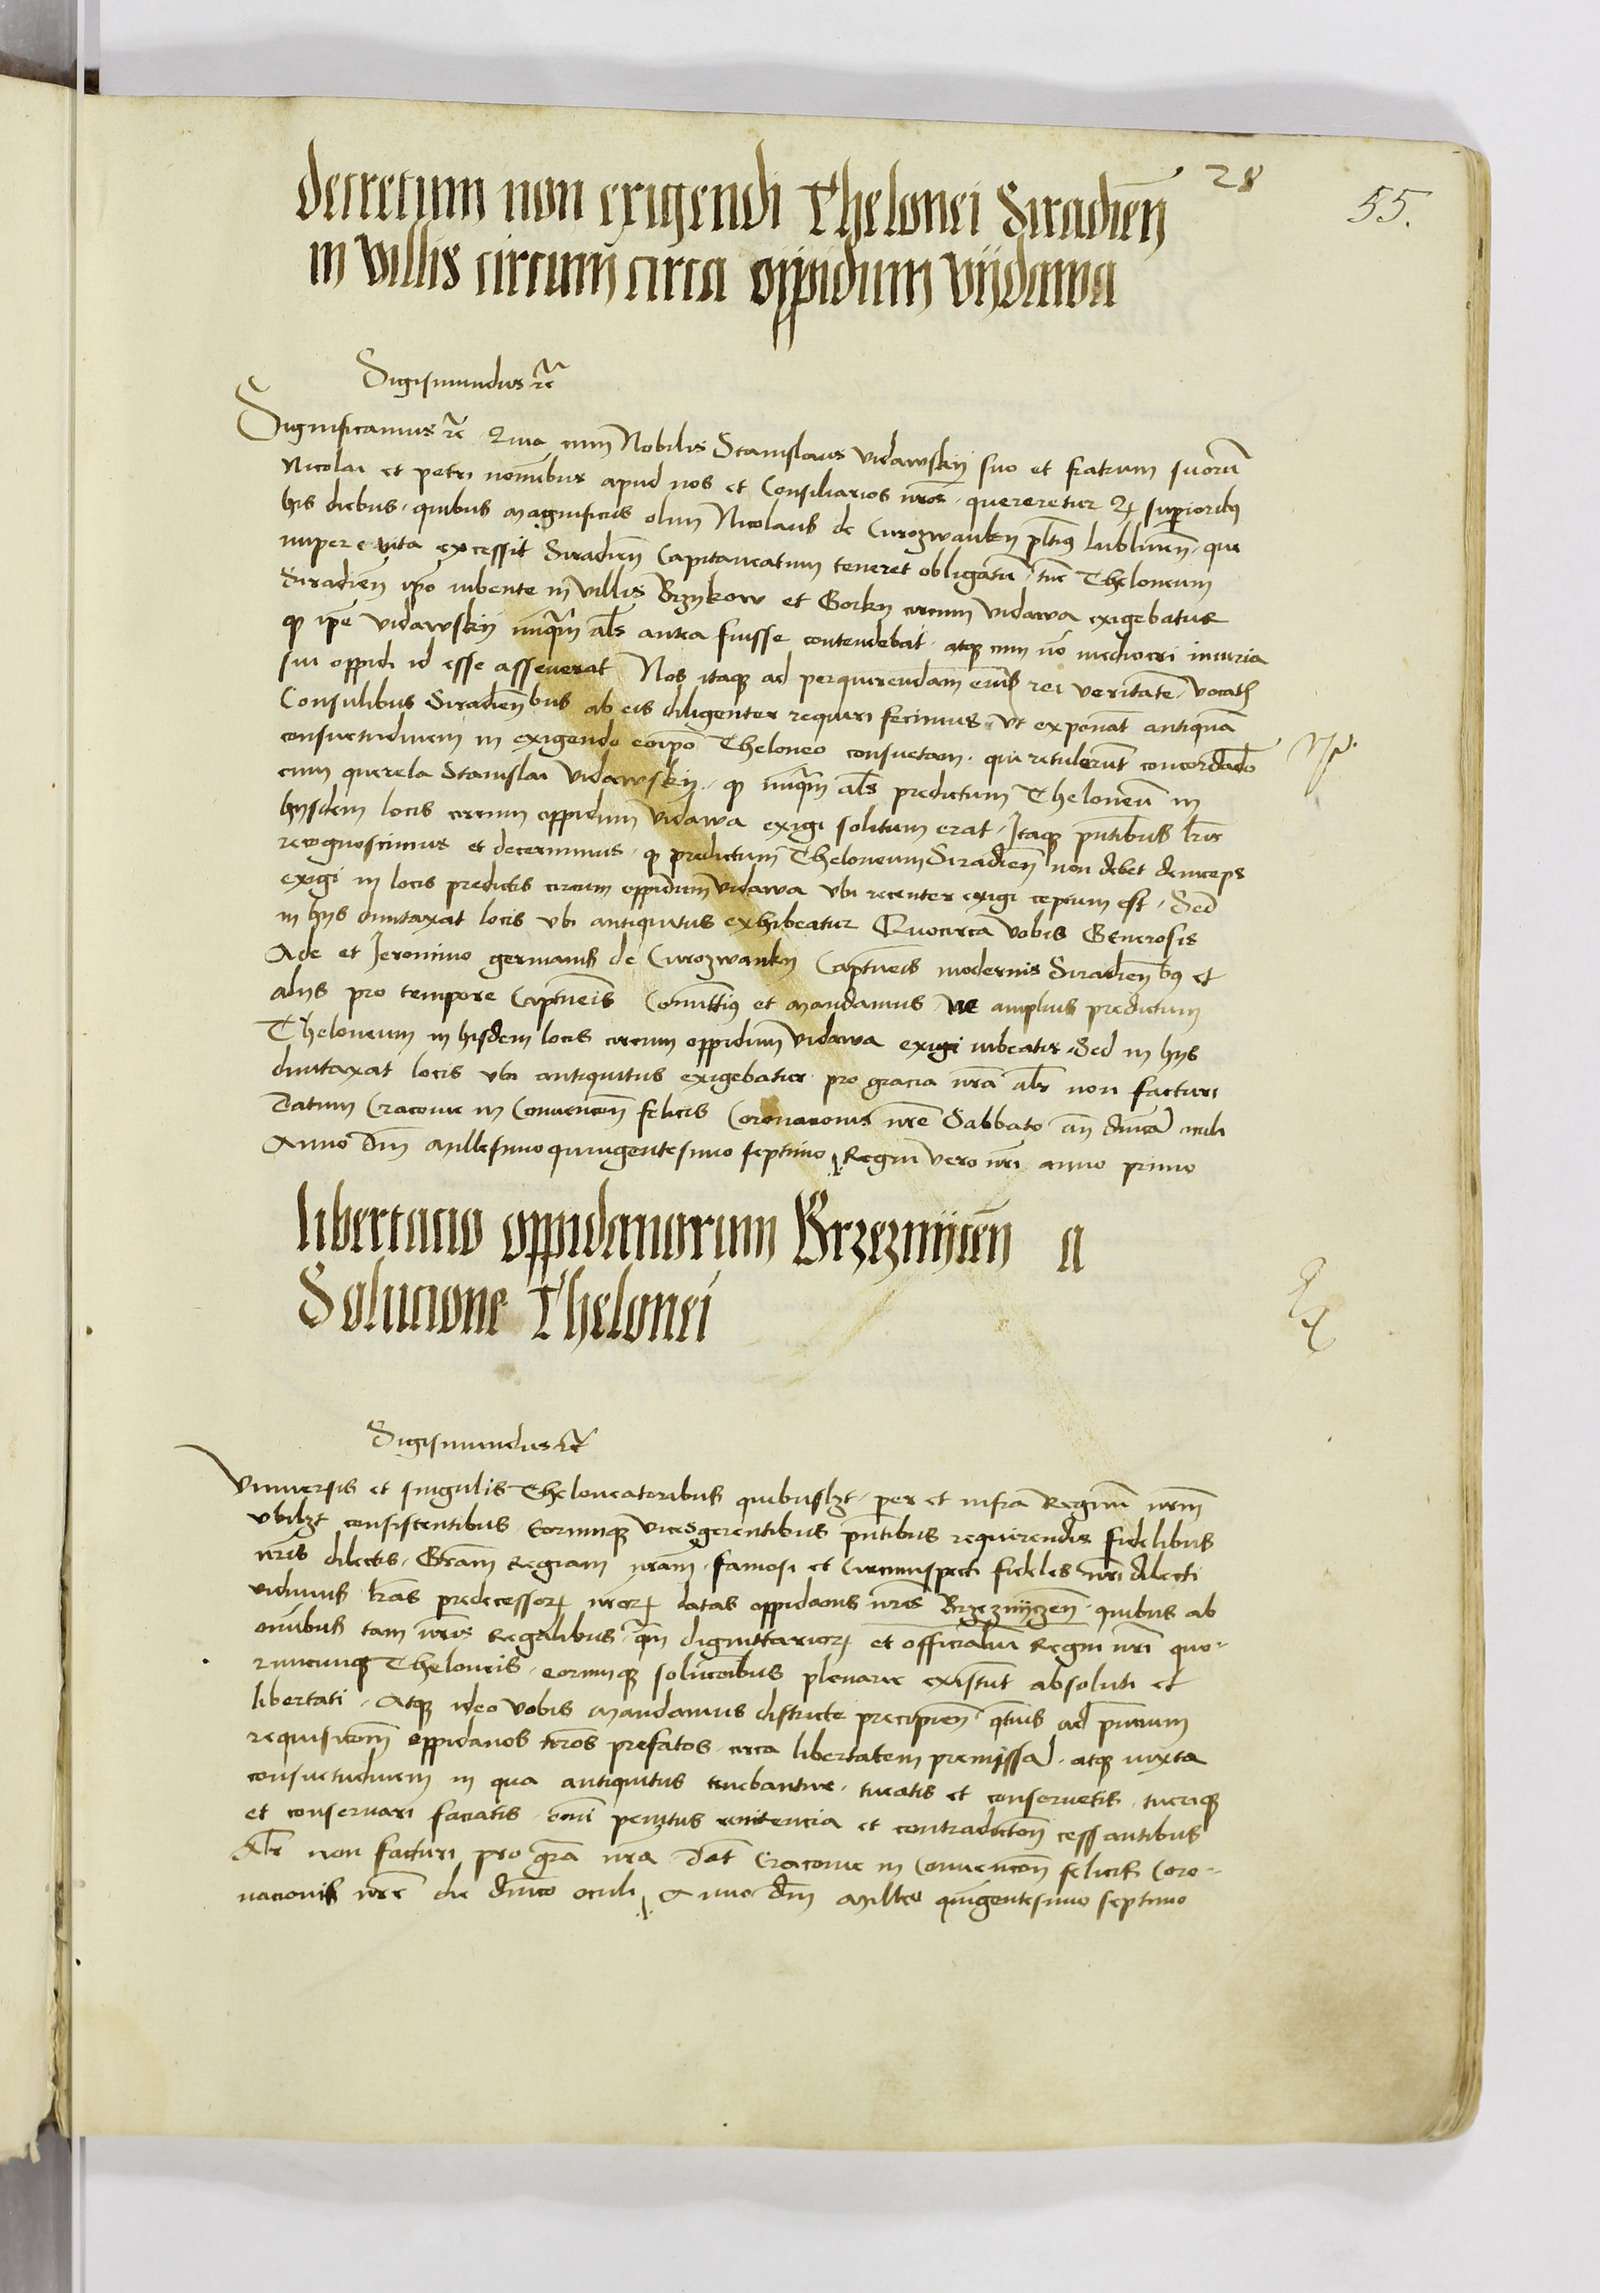 28
55.
decretum non exigendi Thelonei Siradien̄
in villis circum circa oppidum vijdawa
Sigismundus rc̄
Significamus rc̄ Quia cum Nobilis Stanislaus vidawskij suo et fratrum suorū
Nicolai et petri nomībus apud nos et Consiliarios nr̄os quereretur Qꝫ superioribꝰ
his diebus quibus Magnificus olim Nicolaus de Curozwanky pltīꝰ lublineñ qui
nuper e vita excessit Siradieñ Capitaneatum teneret obligatū tūc Theloneum
Siradieñ ip̄o iubente in villis Brzykow et Gorky circum vidawa exigebatur
qꝫ ip̄e vidawskij nūqꝫ als antea fuisse contendebat atqꝫ cum nō mediocri iniuria
sui oppidi id esse asseverat Nos itaqꝫ ad perquirendam eius rei veritatē vocatꝭ
Consulibus Siradieñbus ab eis diligenter requiri fecimus vt exponāt antiquā
consuetudinem in exigendo eoīpō Theloneo consuetam qui retulerūt concordādo
cum querela Stanislai vidawskij qꝫ nūqꝫ als predictum Theloneū in
hijsdem locis circum oppidum vidawa exigi solitum erat Itaqꝫ pn̄tibus lr̄is
recognoscimus et decernimus qꝫ predictum Theloneum Siradieñ non debet deinceps
exigi in locis predictis circum oppidum vidawa vbi recenter exigi ceptum est Sed
in hijs duntaxat locis vbi antiquitus exhibeatur Quocirca vobis Generosis
Ade et Jeronimo germanis de Curozwanky Captn̄eis modernis Siradieñbꝰ et
alijs pro tempore Captn̄eis Comittīꝰ et mandamus ne amplius predictum
Theloneum in hisdem locis circum oppidum vidawa exigi iubeatis Sed in hijs
duntaxat locis vbi antiquitus exigebatur pro gracia nr̄a als non facturi
Datum Cracouie in Convencōe felicis Coronacionis nr̄e Sabbato añ dn̄icā oculi
Anno dn̄i Millesimo quingentesimo septimo Regni vero nr̄i anno primo
libertacio oppidanorum Brzeznijceñ a
Solucione Thelonei
Sigismundus rc̄
Vniuersis et singulis Theloneatoribus quibuslꝫt per et infra Regnū nr̄m
vbilꝫt consistentibus Eorumqꝫ vicesgerentibus pn̄tibus requirendis fidelibus
nr̄is dilectis Gr̄am Regiam nr̄am famosi et Circumspecti fideles nr̄i dilecti
vidimus lr̄as predecessorꝝ nr̄orꝝ datas oppidanis nr̄is Brzeznijczeñ quibus ab
oīnibus tam nr̄is Regalibus qm̄ dignittariorꝝ et officialiū Regni nr̄i quo-
rumcunqꝫ Theloneis eorumqꝫ solucōibus plenarie existūt absoluti et
libertati Atqꝫ ideo vobis mandamus districte precipieñ qtn̄us ad pn̄cium
requisicōm oppidanos nr̄os prefatos circa libertatem premissā atqꝫ iuxta
consuetudinem in qua antiquitus tuebantur tueatis et conservetis tueriqꝫ
et conseruari faciatis omī penitus renitencia et contradictōe cessantibus
Alr̄ non facturi pro gr̄a nr̄a Dat̄ Cracouie in Convencōe felicis Coro-
nacionis nr̄e die dn̄ico oculi Anno dn̄i Millo quīgentesimo septimo